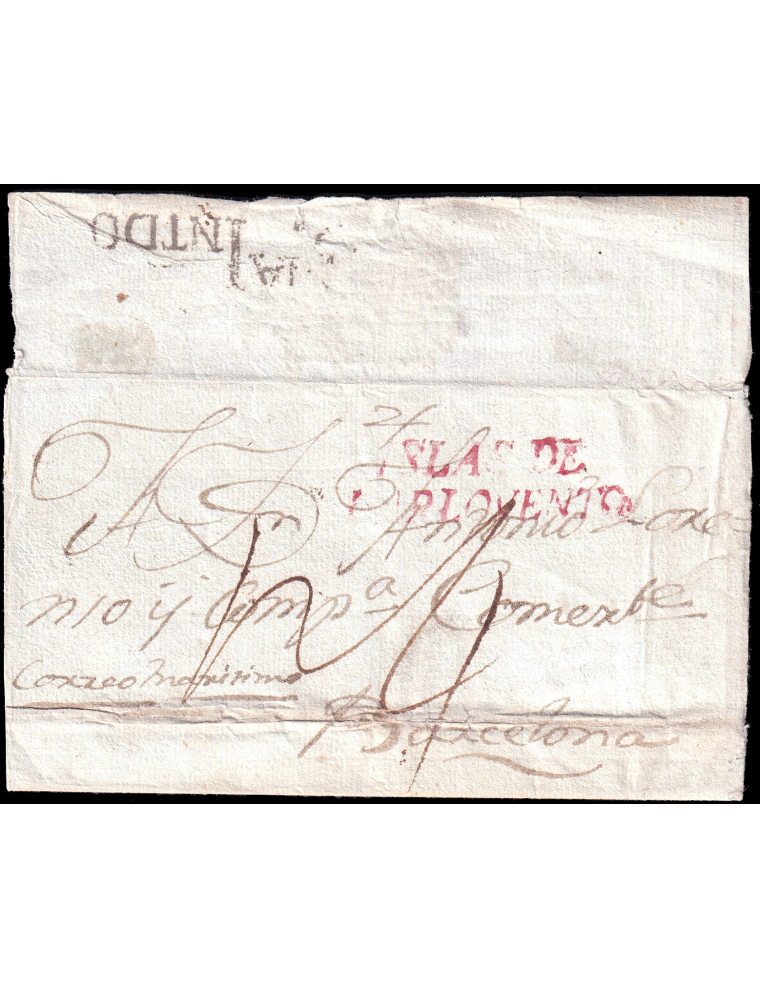 INTDO
21
ISLAS DE
BARLOVENTO
A Dn Antonio Lore=
nio y Compa. Comerte
Correo maritimo
Barcelona